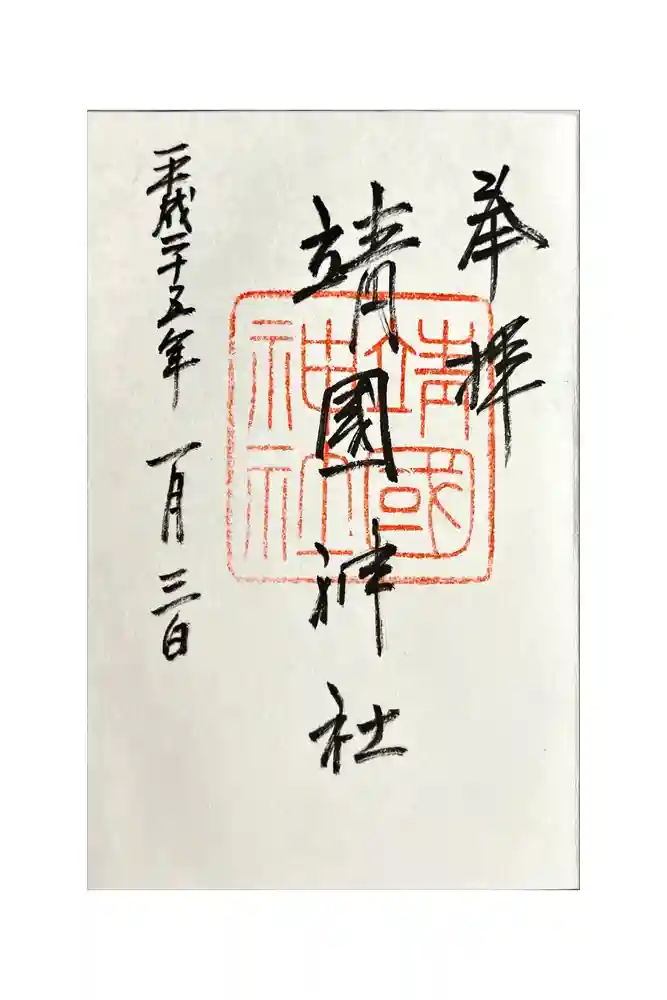 奉拝
靖國神社
靖國神社
平成二十五年一月三日